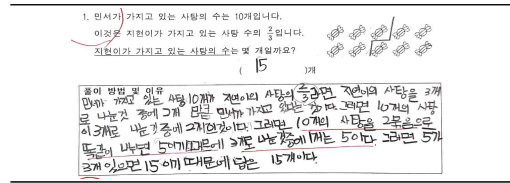 1. 민서가 가지고 있는 사탕의 수는 10개입니다.
이것은 지현이가 가지고 있는 사탕 수의 2/3 입니다.
지현이가 가지고 있는 사탕의 수는 몇 개일까요?
( 15 )개
풀이 방법 및 이유
민서가 가지고 있는 사탕 10개가 지현이의 사탕의 2/3라면 지현이의 사탕을 3개
로 나눈것 중에 2개 민서가 가지고 있다는 것이다. 그러면 10개의 사탕
이 3개로 나눈것 중에 2개인것이다. 그러면 10개의 사탕을 2묶음으로
똑같이 나누면 5이기때문에 3개로 나눈것중에 1개는 5이다. 그러면 5가
3개 있으면 15이기 때문에 답은 15개이다.